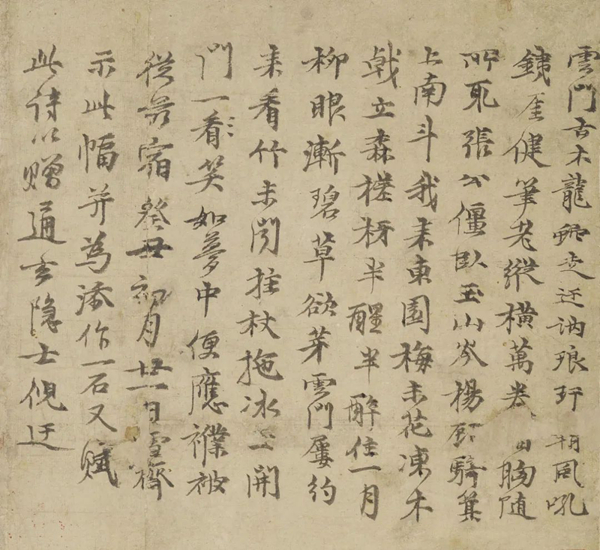 雲門古木龍蛇走迂訥琅玕風吼
鐵崖健筆老縱橫萬卷胸隨
所取張公僵臥玉山岑楊騎箕
上南斗我來東園梅未花凍木
戟立森槎枒半醒半醉住一月
柳眼漸碧草欲芽雲門屢約
來看竹未問拄杖拖冰玉開
門一看笑如夢中便應襆被
從君宿癸丑初月廿一日雪齋
示此幅并為添作一石又賦
此詩以贈通玄隱士倪迂